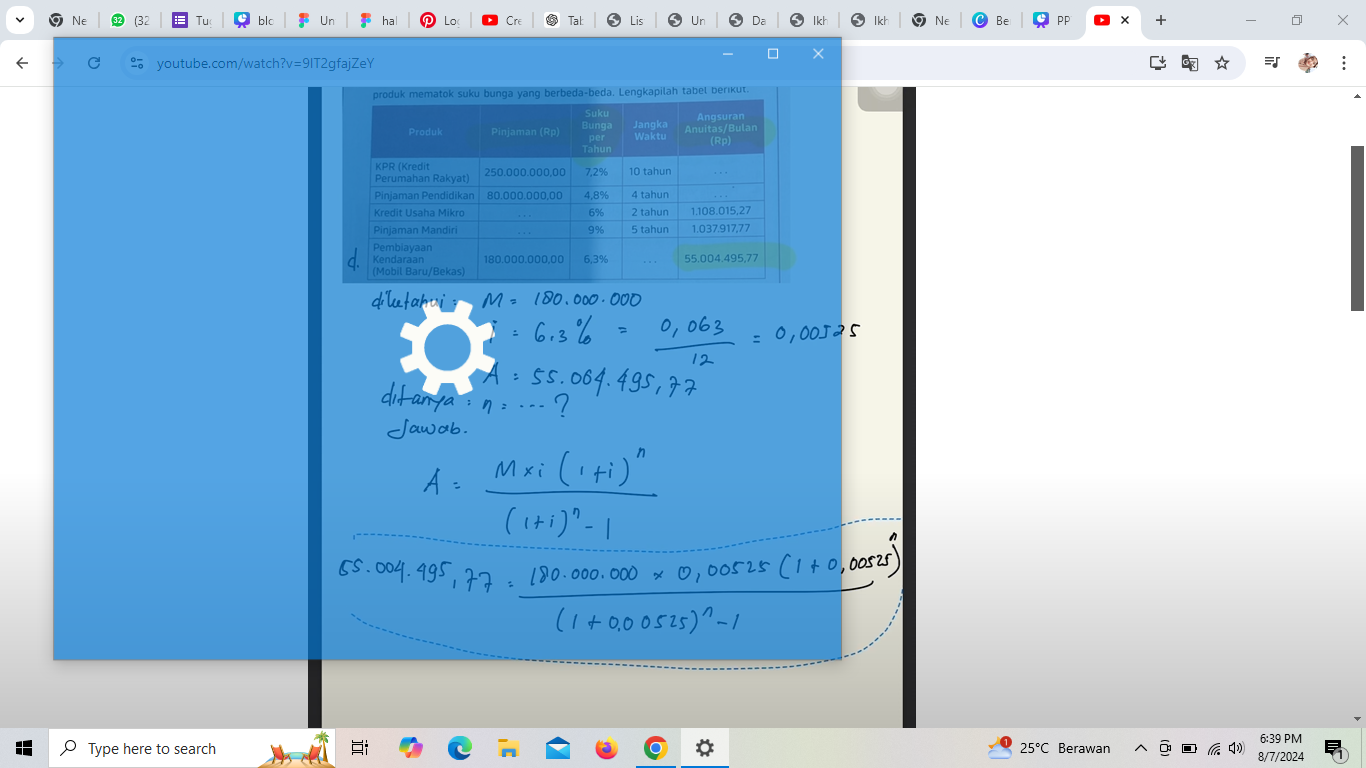 Ne
(32
Tug
blo
Un
hal
Log
Cre
Tab
Lis
Un
Da
Ikh
Ikh
Ne
Be
PP
youtube.com/watch?v=9IT2gfajZeY
produk mematok suku bunga yang berbeda-beda. Lengkapilah tabel berikut.
Produk Pinjaman (Rp) Suku Bunga per Tahun Jangka Waktu Angsuran Anuitas/Bulan (Rp)
KPR (Kredit Perumahan Rakyat) 250.000.000,00 7,2% 10 tahun ...
Pinjaman Pendidikan 80.000.000,00 4,8% 4 tahun ...
Kredit Usaha Mikro ... 6% 2 tahun 1.108.015,27
Pinjaman Mandiri ... 9% 5 tahun 1.037.917,77
Pembiayaan Kendaraan (Mobil Baru/Bekas) 180.000.000,00 6,3% ... 55.004.495,77
d.
diketahui = M = 180.000.000
i = 6.3% = 0,063 / 12 = 0,00525
A = 55.004.495,77
ditanya : n = ... ?
Jawab.
A = M x i (1+i)^n
(1+i)^n - 1
55.004.495,77 = 180.000.000 x 0,00525 (1+0,00525)^n
(1+0,00525)^n - 1
Type here to search
25°C Berawan
6:39 PM
8/7/2024
1